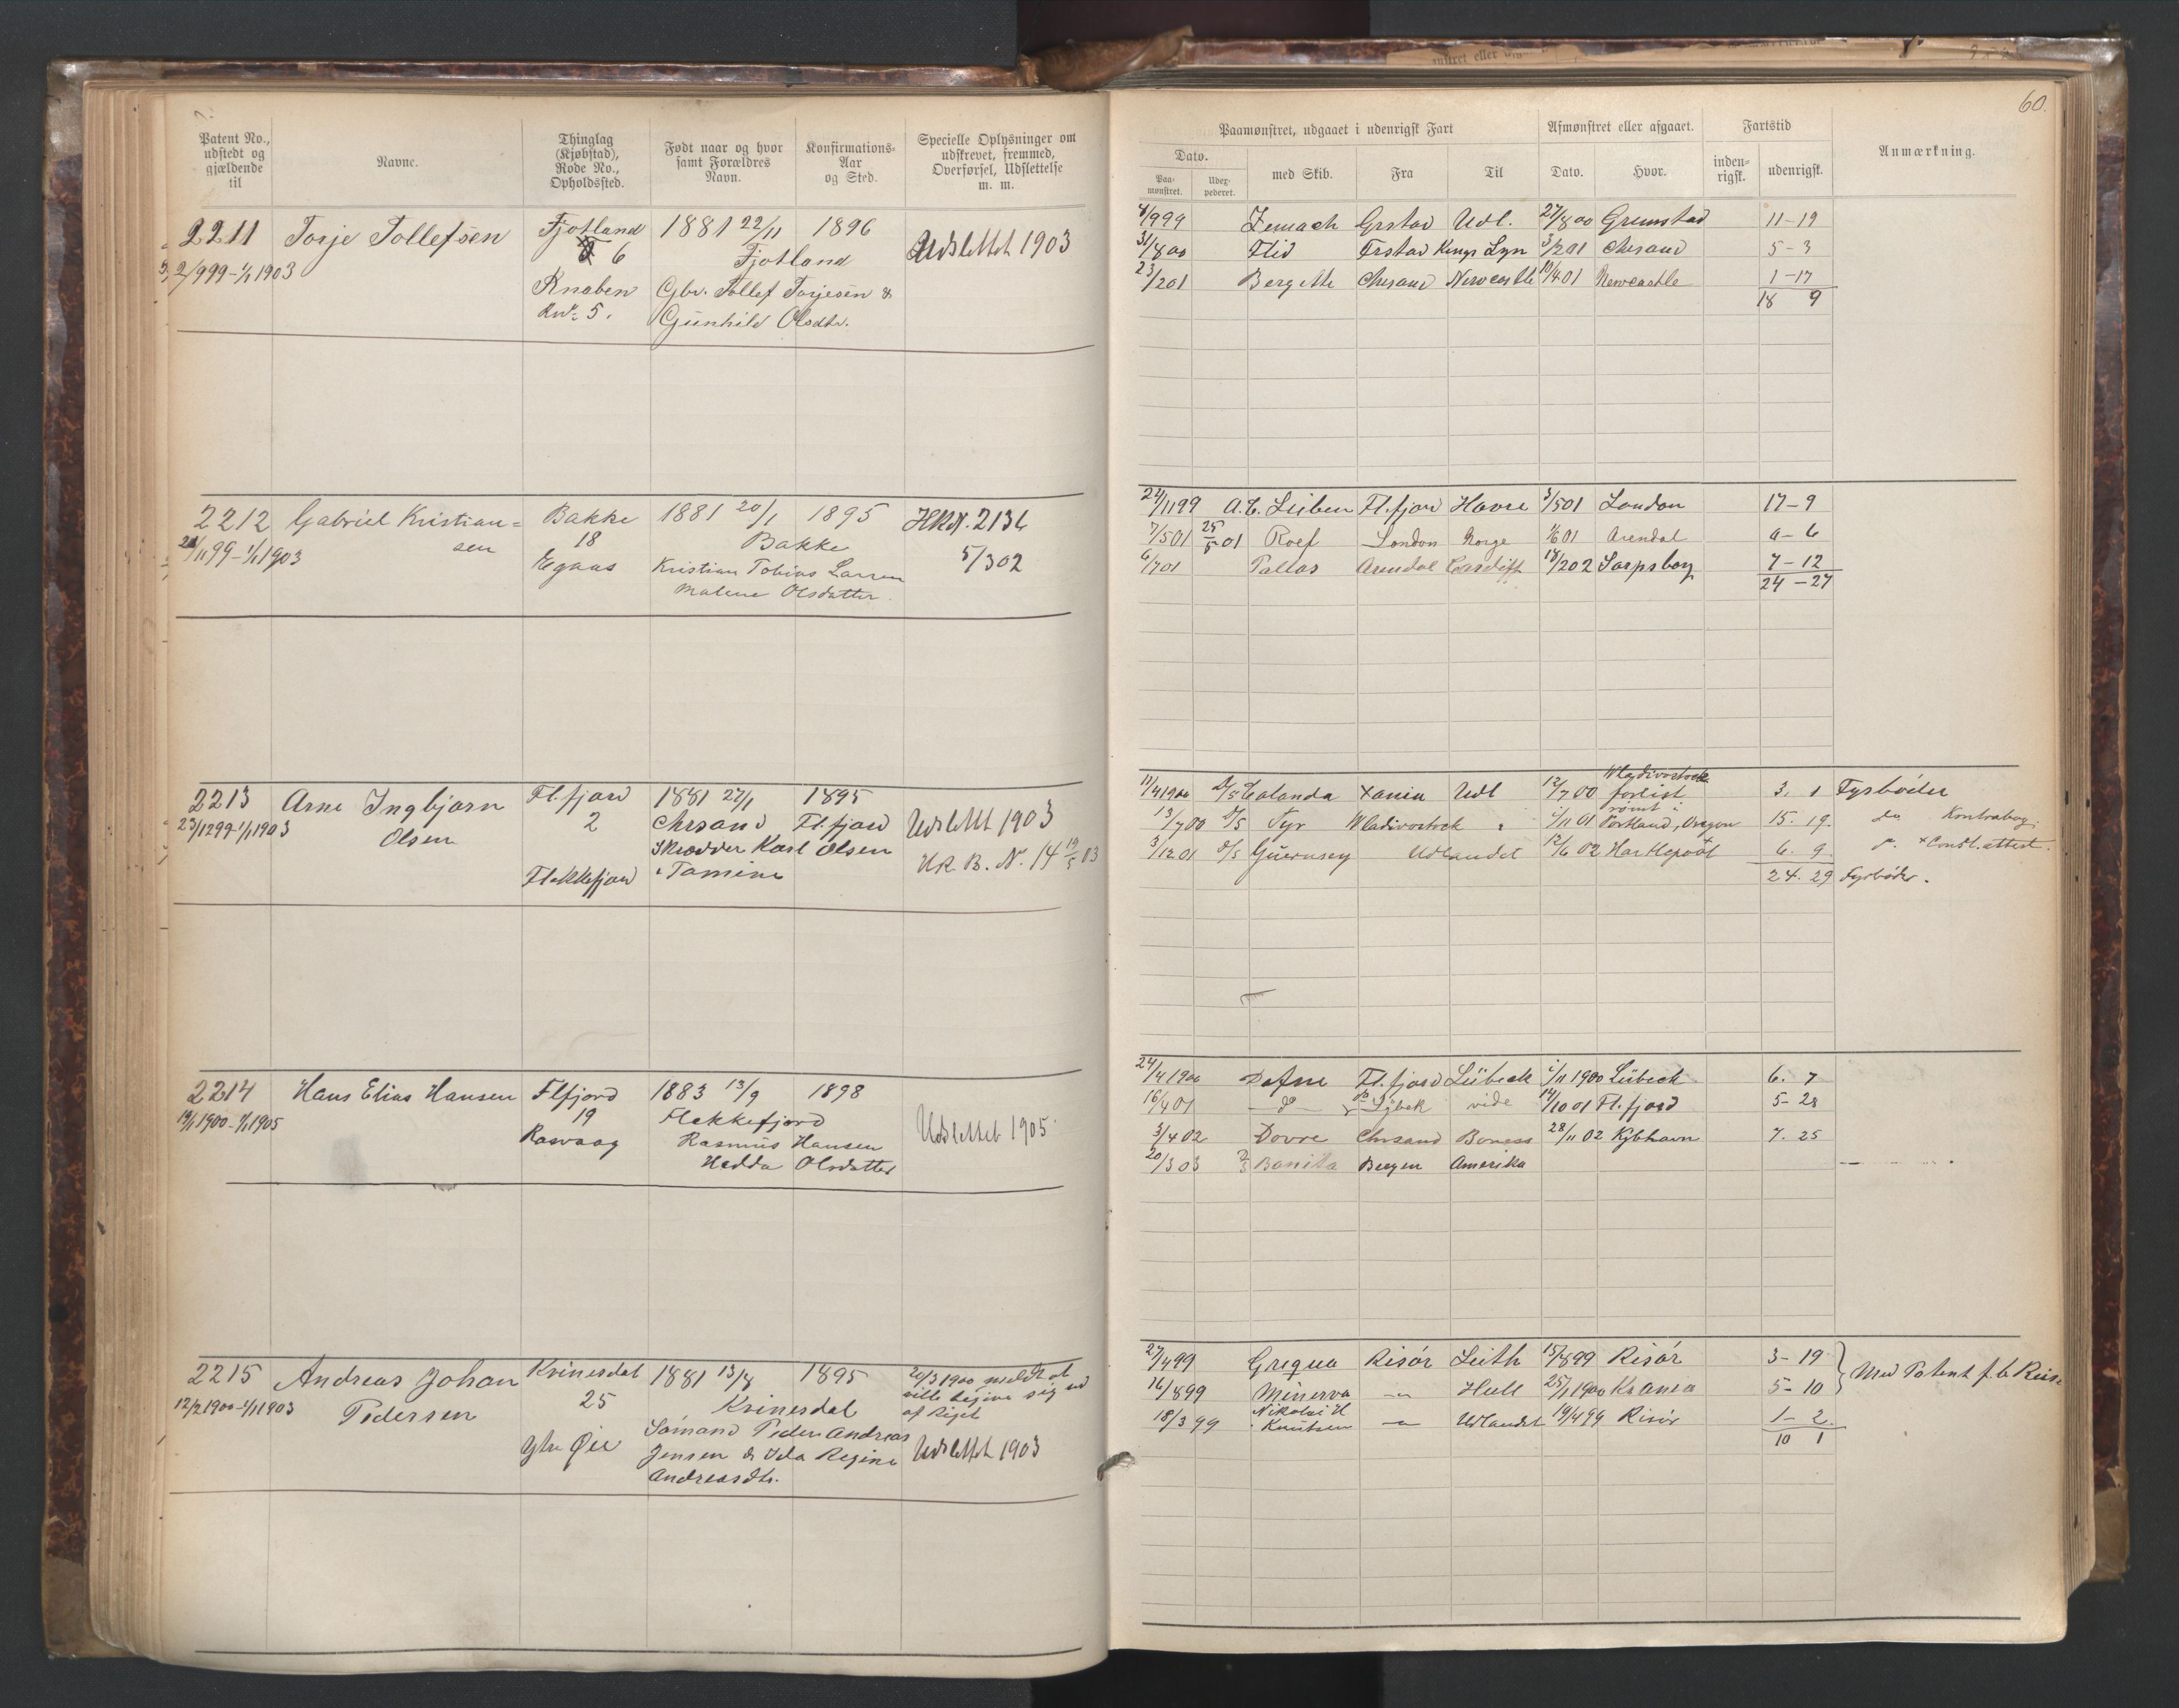 60.
Patent No., udstedt og gjældende til
Navne.
Thinglag (Kjøbstad), Rode No., Opholdssted.
Født naar og hvor samt Forældres Navn.
Konfirmations-Aar og Sted.
Specielle Oplysninger om udskrevet, fremmed, Overførsel, Udslettelse m. m.
Paamønstret, udgaaet i udenrigsk Fart
Afmønstret eller afgaaet.
Fartstid
Anmærkning.
Dato.
Paa-mønstret.
Udex-pederet.
med Skib.
Fra
Til
Dato.
Hvor.
inden-rigsk.
udenrigsk.
2211 Torje Tollefsen Fjotland 1881 22/11 1896 Udslettet 1903
2/999-1/1 1903 6 Fjotland
Knaben Gbr. Tollef Torjesen &
Rn. 5. Gunhild Olsdtr.
4/999 Zemach Grstad Udl. 27/800 Grimstad 11-19
31/800 Flid Grstad Kings Lyn 3/201 Chrsand 5-3
23/201 Bergitte Chrsand Newcastle 10/401 Newcastle 1-17
18 9
2212 Gabriel Kristian= Bakke 1881 20/1 1895 HRN. 2134
24/1199-1/1 1903 sen 18 Bakke 5/302
Egaas Kristian Tobias Larsen
Malene Olsdatter.
24/1199 Fl.fjord Havre 3/501 London 17-9
7/501 25/5 01 Roef London Norge 4/601 Arendal 0-6
6/701 Pallas Arendal Cardiff 18/202 Sarpsborg 7-12
24-27
2213 Arne Ingbjørn Fl.fjord 1881 27/1 1895 Udslettet 1903
23/1299-1/1 1903 Olsen 2 Chrsand Fl.fjord
Skrædder Karl Olsen HR B. N. 14 19/5 03
Flekkefjord & Tomine
Wladivostock
17/4 1900 D/S Calanda Xania Udl 12/700 forlist 3. 1 Fyrbøder
rømt i
13/700 D/S Tyr Wladivostock 1/11 01 Portland, Oregon 15. 19. do Kontrabog.
3/1201 D/S Guernsey Udlandet 12/6 02 Hartlepool 6. 9. + Consl. attest.
24. 29 Fyrbøder.
2214 Hans Elias Hansen Flfjord 1883 13/9 1898
19/1 1900-1/1 1905 19 Flekkefjord Udslettet 1905
Rasvaag Rasmus Hansen
Hedda Olsdatter
24/4 1900 Dafne Fl.fjord Lübeck 1/11 1900 Lübeck 6. 7
16/401 do Lybek vide 14/10 01 Fl.fjord 5-28
3/402 Dovre Chrsand Boness 28/11 02 Kjbhavn 7. 25
20/303 Bonita Bergen Amerika
2215 Andreas Johan Kvinesdal 1881 13/8 1895 20/3 1900 meldt at
12/2 1900-1/1 1903 Pedersen 25 Kvinesdal ville begive sig ud
af Riget
Ytre Øie Sømand Peder Andreas
Jensen & Ida Regine Udslettet 1903
Andreasdtr.
27/499 Grequa Risør Leith 15/899 Risør 3-19 Med Patent f. b. Reise
16/899 Minerva -"- Hull 25/1 1900 Krania 5-10
18/3 99 Nikolai H. Knutsen -"- Udlandet 19/499 Risør 1-2.
10 1